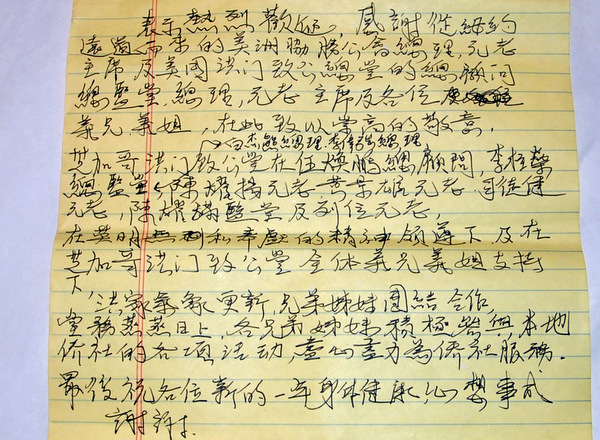 表示熱烈歡迎，感謝從紐約
遠道而來的美洲協勝公會總理，元老
主席及美国洪门致公總堂的總顧问
總監堂，總理，元老 主席及各位
義兄義姐，在此致以崇高的敬意，
芝加哥洪门致公堂在伍煥鵬總顧問 李柱榮
總監堂 陳耀揚元老 黃榮 元老 司徒健
元老，陳耀 監堂及列位元老，
在英明 和 的精神领導下及在
芝加哥洪门致公堂全体義兄義姐支持
下
洪家氣象更新，兄弟姊妹團結合作，
堂務蒸蒸日上，各兄弟姊妹積極參與本地
侨社的各項活动，盡心盡力為侨社服務.
最後祝各位新的一年身体健康，心想事成
謝謝.